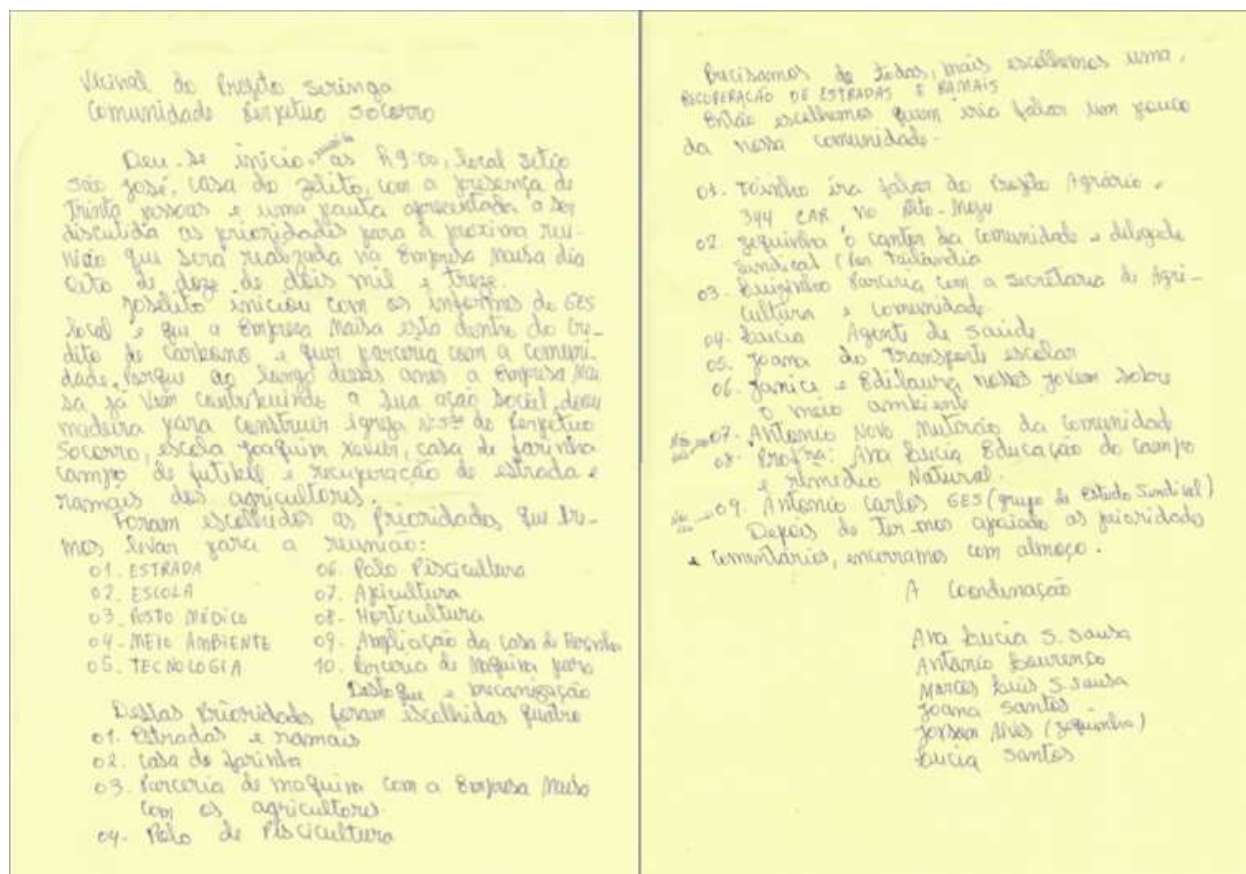 Vicinal do Projeto Seringa
Comunidade Perpetuo Socorro
Deu-se inicio as h9:00, local sitio
São José, casa do zelito, com a presença de
Trinta pessoas e uma pauta apresentada a ser
discutida as prioridades para a proxima reu-
nião que será realizada na Empresa Maisa dia
oito de doze de dois mil e treze.
Joselito iniciou com os informes do GES
local e que a Empresa Maisa esta dentro do Cre-
dito de Carbono e quer parceria com a comuni-
dade, Porque ao longo desses anos a Empresa Mai
sa já vem contribuindo a sua ação social, deu
madeira para construir igreja de Perpetuo
Socorro, escola Joaquim Xavier, casa de farinha
campo de futebol e recuperação de estrada e
ramais dos agricultores.
Foram escolhidos as prioridades que ire-
mos levar para a reunião:
01. ESTRADA
02. ESCOLA
03. POSTO MÉDICO
04. MEIO AMBIENTE
05. TECNOLOGIA
06. Polo Piscicultura
07. Apicultura
08. Horticultura
09. Ampliação da casa de Farinha
10. Parceria de Maquina para
Destoque e mecanização
Destas Prioridades foram escolhidas quatro
01. Estradas e ramais
02. casa de farinha
03. Parceria de maquina com a Empresa Maisa
com os agricultores.
04. Polo de Piscicultura
Precisamos de todas, mais escolhemos uma,
RECUPERAÇÃO DE ESTRADAS E RAMAIS
Então escolhemos quem iria falar um pouco
da nossa comunidade.
01. Toinho ira falar do Projeto Agrário e
344 CAR no Alto-Moju
02. Zequinha o cantor da comunidade e delegado
Sindical Tailandia
03. Luizinho Parceria com a secretaria de Agri-
cultura e comunidade
04. Lucia Agente de Saúde
05. Joana do Transporte escolar
06. Janice e Edilaura nossos jovem sobre
o meio ambiente
07. Antonio Novo Mutirão da comunidade
08. Profra: Ana Lucia Educação do Campo
e remedio Natural.
09. Antonio Carlos GES (grupo de Estudo Sindical)
Depois de Ter-mos apoiado as prioridade
e comentarios, encerramos com almoço.
A Coordenação
Ana Lucia S. Sousa
Antonio Lourenço
Marcos Luis S. Sousa
Joana Santos
Alves (Zequinha)
Lucia Santos